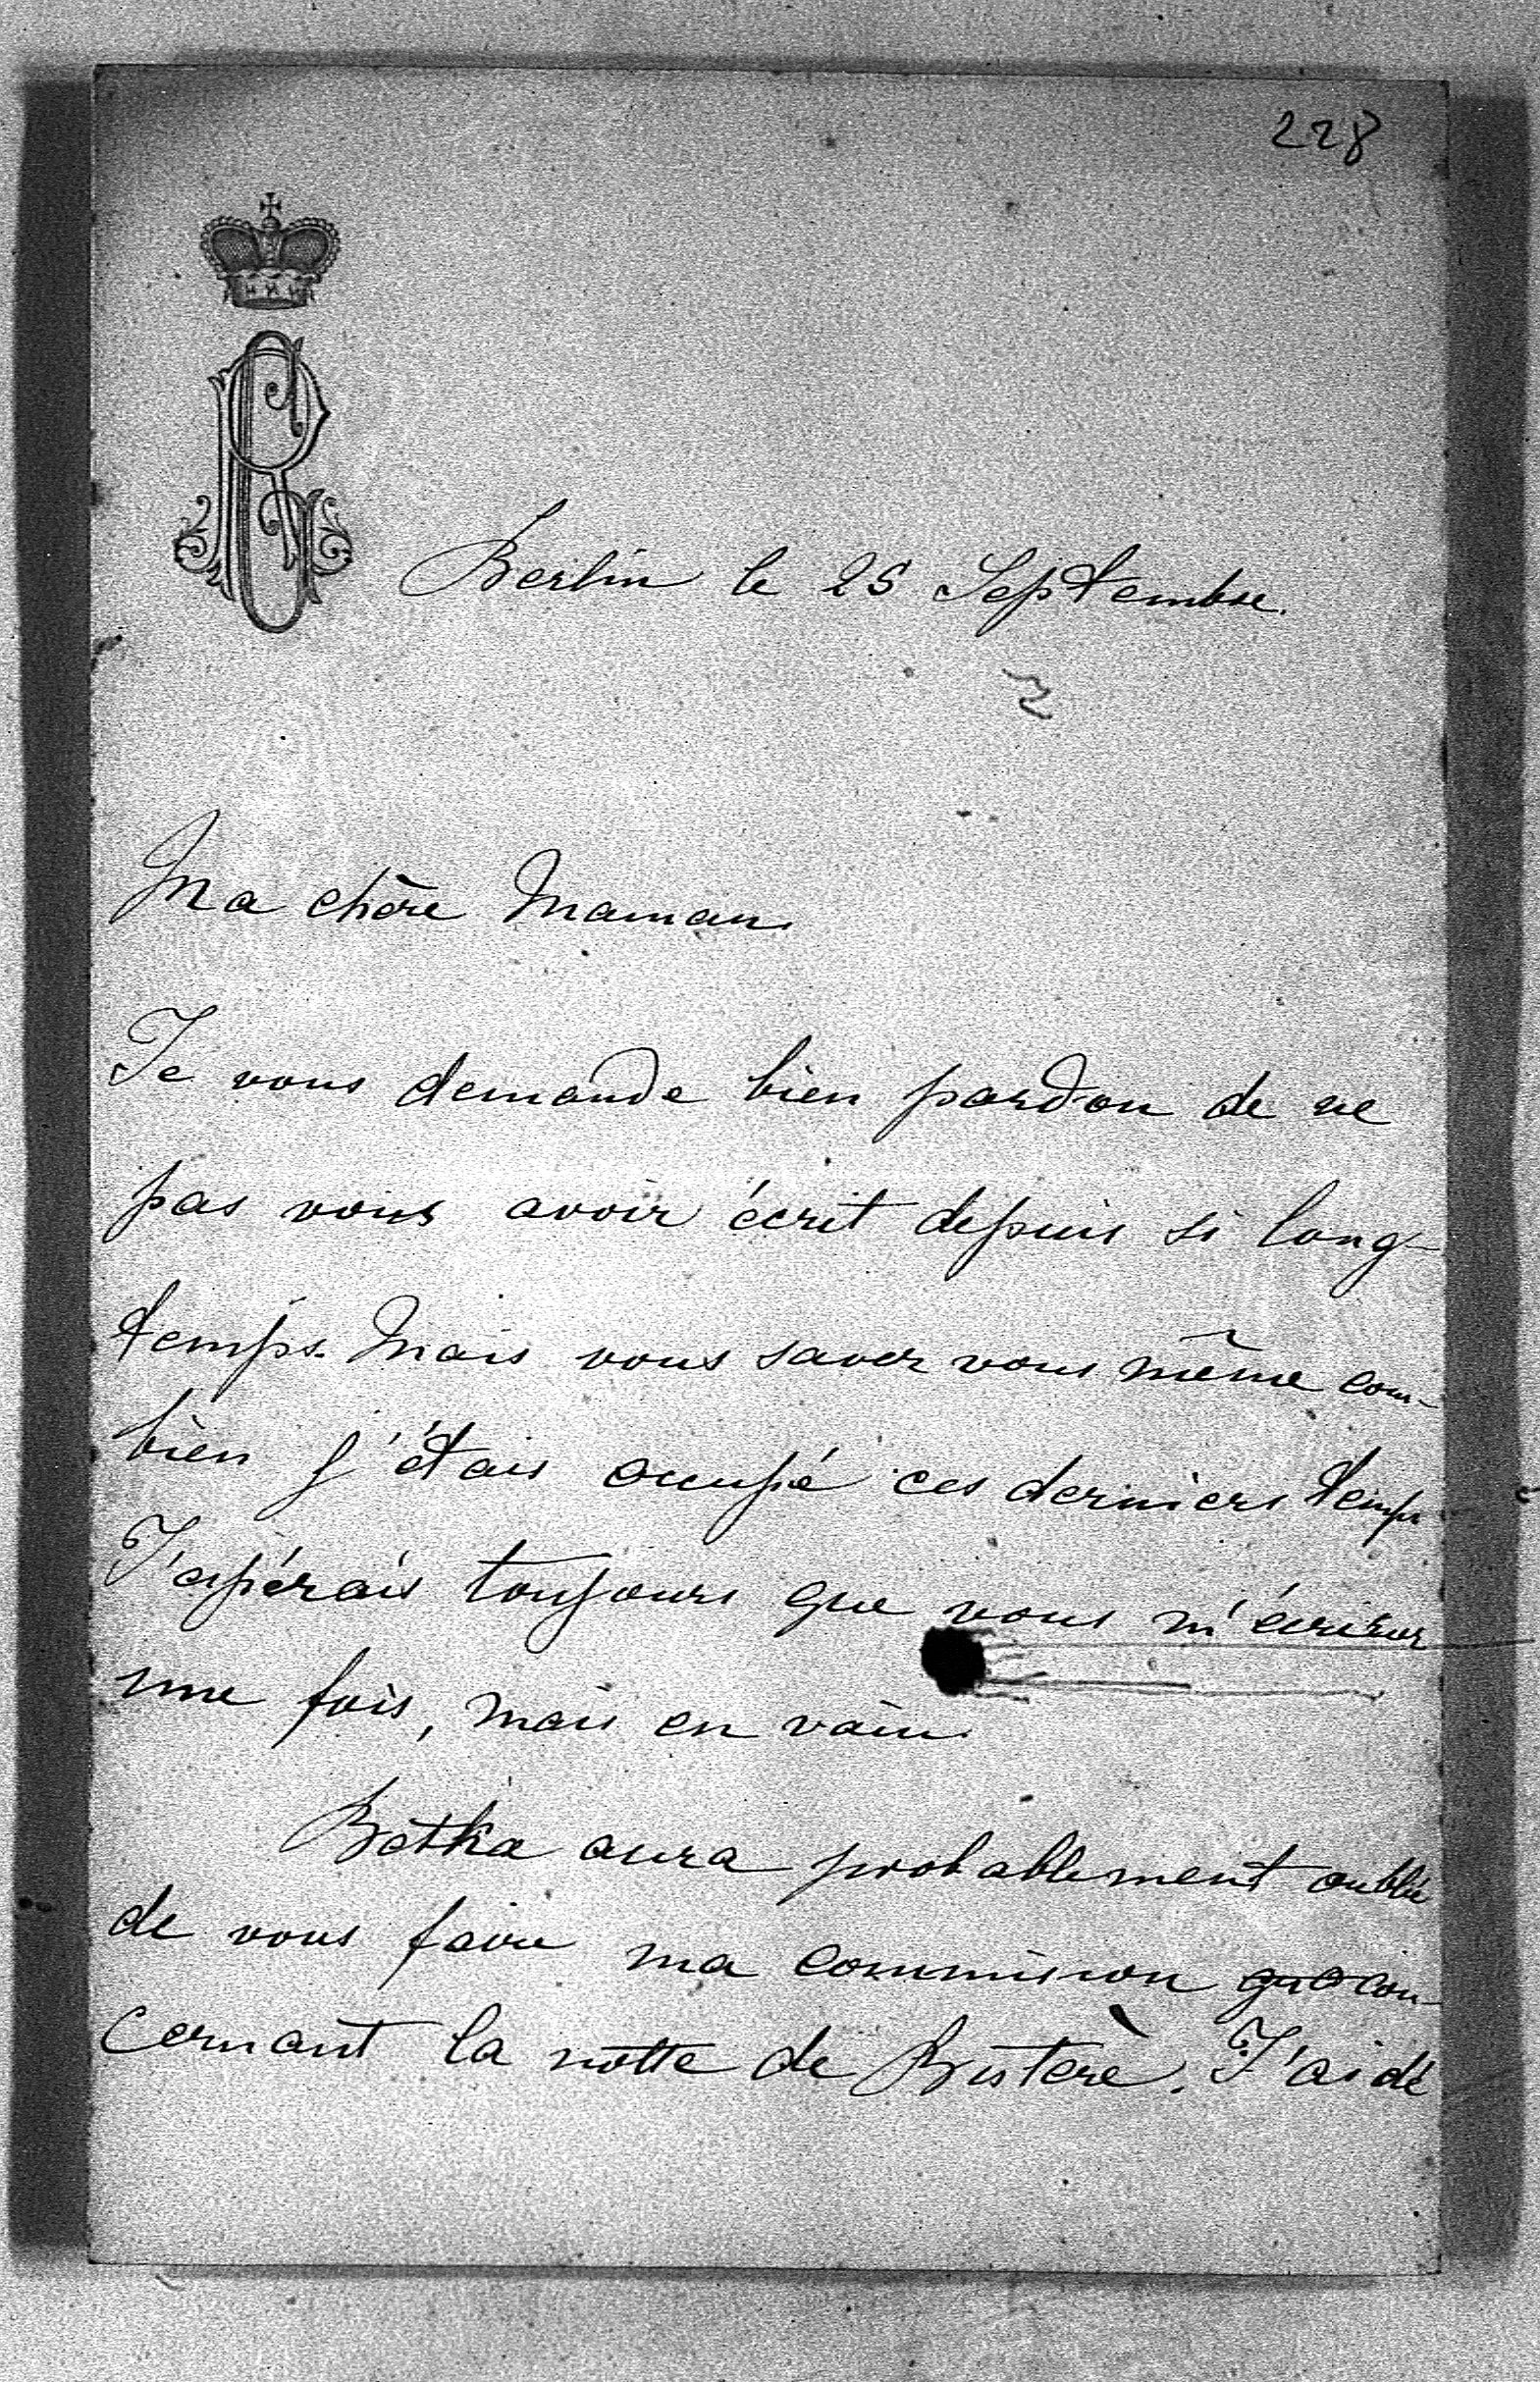 228
Berlin le 25 Septembre.
Ma chère Maman.
Je vous demande bien pardon de ne
pas vous avoir écrit depuis si long-
temps. Mais vous saver vous même com-
bien j'étais occupé ces derniers temps
J'espérais toujours que vous m'écrirer
une fois, mais en vain.
Betka aura probablement oublié
de vous faire ma commission con-
cernant la notte de Bisterè. J'ai dé